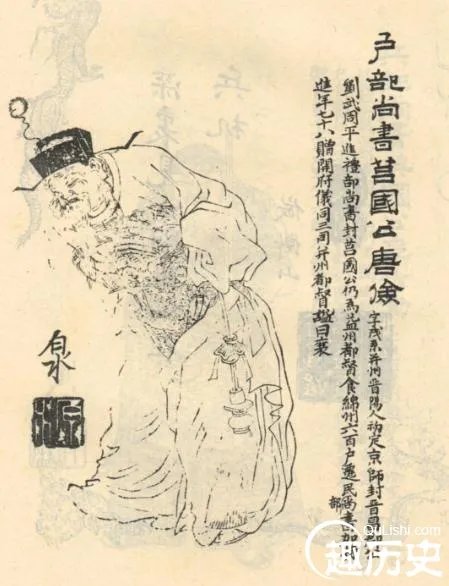 户部尚書莒國公唐儉
字茂系并州晉陽人初定京師封晉昌郡
劉武周平進禮部尚書封莒國公仍為益州都督食綿州六百户遷民尚書加特
部
進年七十八贈開府儀同三司并州都督謚曰襄
泉
QuLiShi.com
趣历史